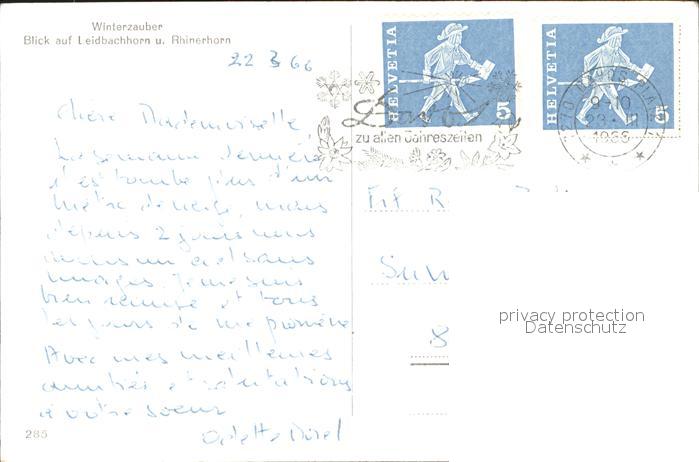 Winterzauber
Blick auf Leidbachhorn u. Rhinerhorn
22 3 66
HELVETIA
5
HELVETIA
5
Davos
zu allen Jahreszeiten
7270 DAVOS PLATZ
9-10
1966
Chère Mademoiselle,
La semaine dernière
il est tombé plus d'un
mètre de neige, mais
depuis 2 jours nous
avons un ciel sans
nuages. Je me suis
bien remise et tous
les jours je me promène
Avec mes meilleures
amitiés et salutations
à votre soeur
Odette
Frl R
8
privacy protection
Datenschutz
285